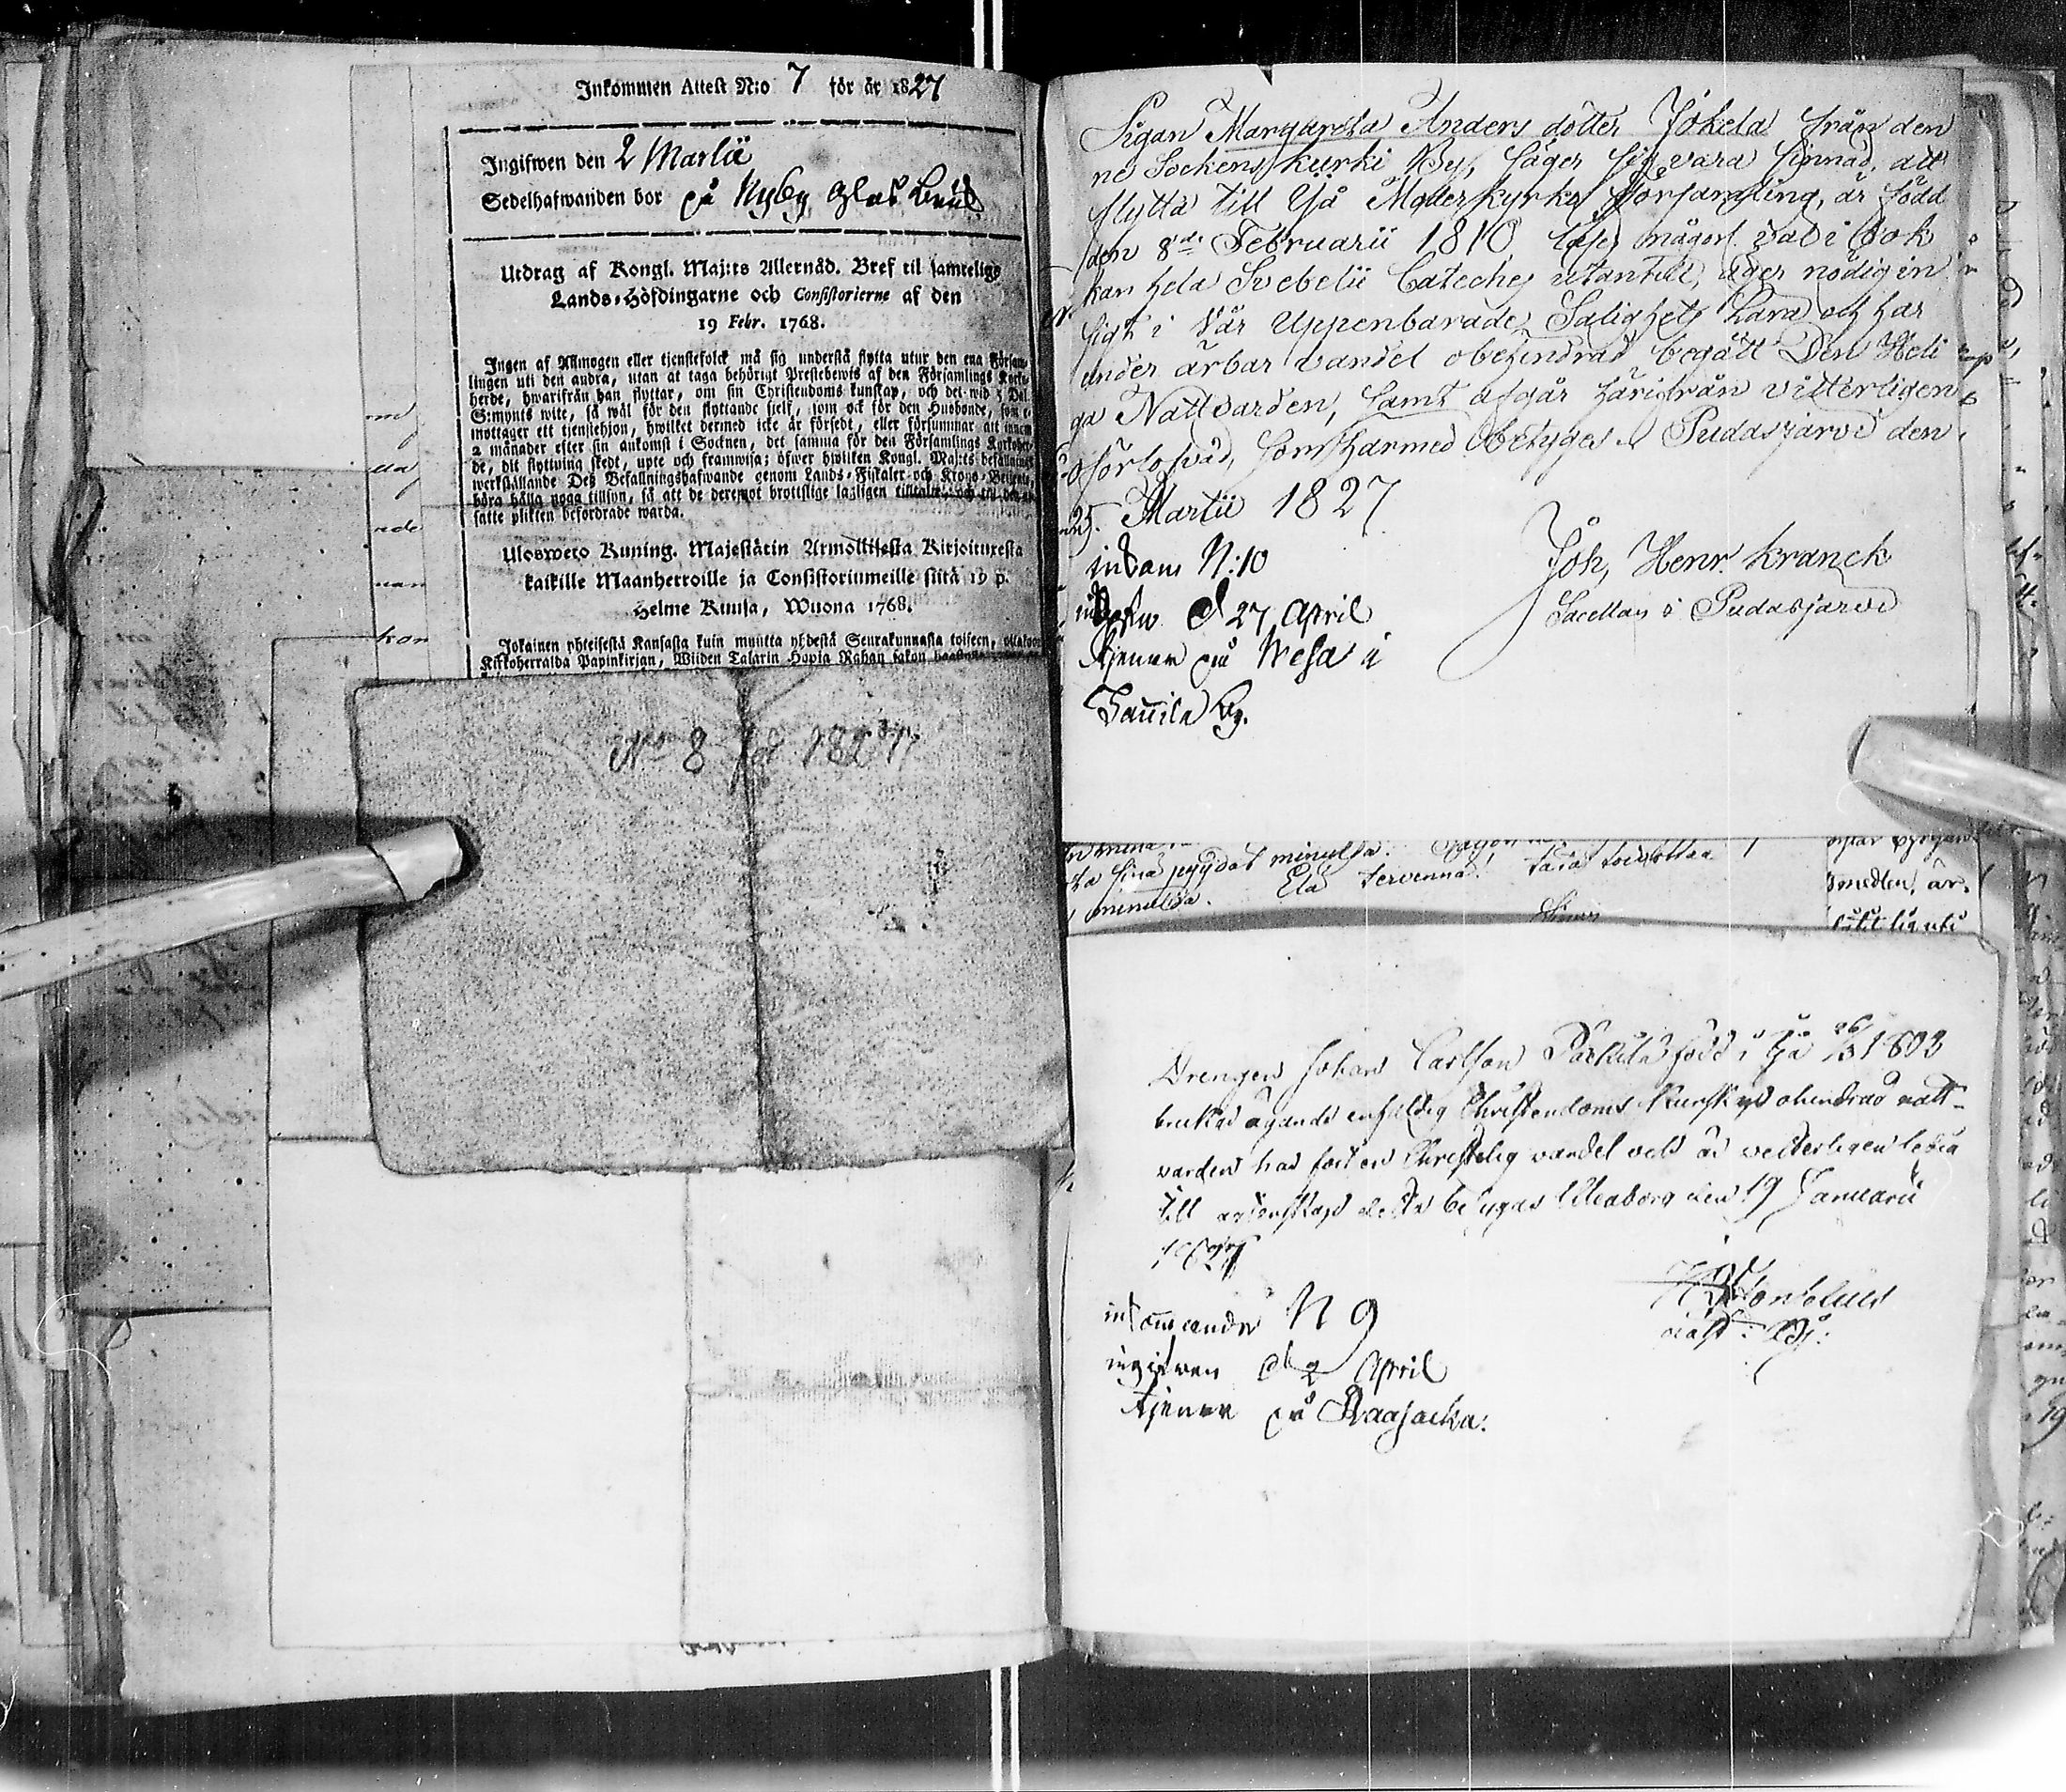 Inkommen Attest N:o 7 för år 1827
Ingifwen den 2 Martii
Sedelhafwanden bor på Nyby Glas Bruk
Utdrag af Kongl. Maj:ts Allernåd. Bref til samtelige
Lands-Höfdingarne och Consistorierne af den
19 Febr. 1768.
Ingen af Allmogen eller tjenstefolck må sig understå flytta utur den ena Försam-
lingen uti den andra, utan at taga behörigt Prestebewis af den Församlings Kyrko-
herde, hwarifrån han flyttar, om sin Christendoms kunskap, och det wid 5 Dal.
S:mynts wite, så wäl för den flyttande sjelf, som ock för den Husbonde, som e-
mottager ett tjenstehjon, hwilket dermed icke är försedt, eller försummar att innom
2 månader efter sin ankomst i Socknen, det samma för den Församlings Kyrkoher-
de, dit flyttning skedt, upte och framwisa; öfwer hwilken Kongl. Maj:ts befallnings
werkställande Deß Befallningshafwande genom Lands-Fiskaler och Krono-Betjente,
böra hålla noga tillsyn, så att de deremot brottslige lagligen tilltalte, och til den ut-
satte plikten befordrade warda.
Uloswero Kuning. Majestätin Armollisesta Kirjoituxesta
kaikille Maanherroille ja Consistoriumeille siitä 19 p.
Helme Kuusa, Wuona 1768.
Jokainen yhteisestä Kansasta kuin muutta yhdestä Seurakunnasta toiseen, ottakoon
Kirkoherralda Papinkirjan, Wiiden Talarin Hopia Rahan sakon
No 8 för 1827
Pigan Margareta Anders dotter Jokela från den
ne Sockens Kurki By, säger sig vara sinnad att
flytta till Ijå Moderkyrko Församling, är född
den 8de Februarii 1810, läser någorl. väl i bok
kan hela Svebelii Cateches utantill, äger nödig in
sigt i Vår Uppenbarade Salighets Lära och har
under ärbar vandel obehindrad begått Den Heli
ga Nattvarden, samt afgår härifrån vitterligen
oförlofvad, som härmed betygas. Pudasjärvi den
25. Martii 1827
Joh. Henr. Kranck
Sacellan i Pudasjärvi
inkom N:10
d 27 April
tjenar på Wesa i
Jauila By.
minulda.
Elä terwennä!
Drengen Johan Carlsson Packila född i Ijå 26/3 1803
brukad ägande enfaldig Christendoms kunskap ohindrad natt-
varden har fört en Christelig vandel och är vetterligen ledig
till äctenskap detta betygas Uleaborg den 19 Januarii
1827
inkommande N 9
ingifwen d 2 April
tjenar på Raasacka: